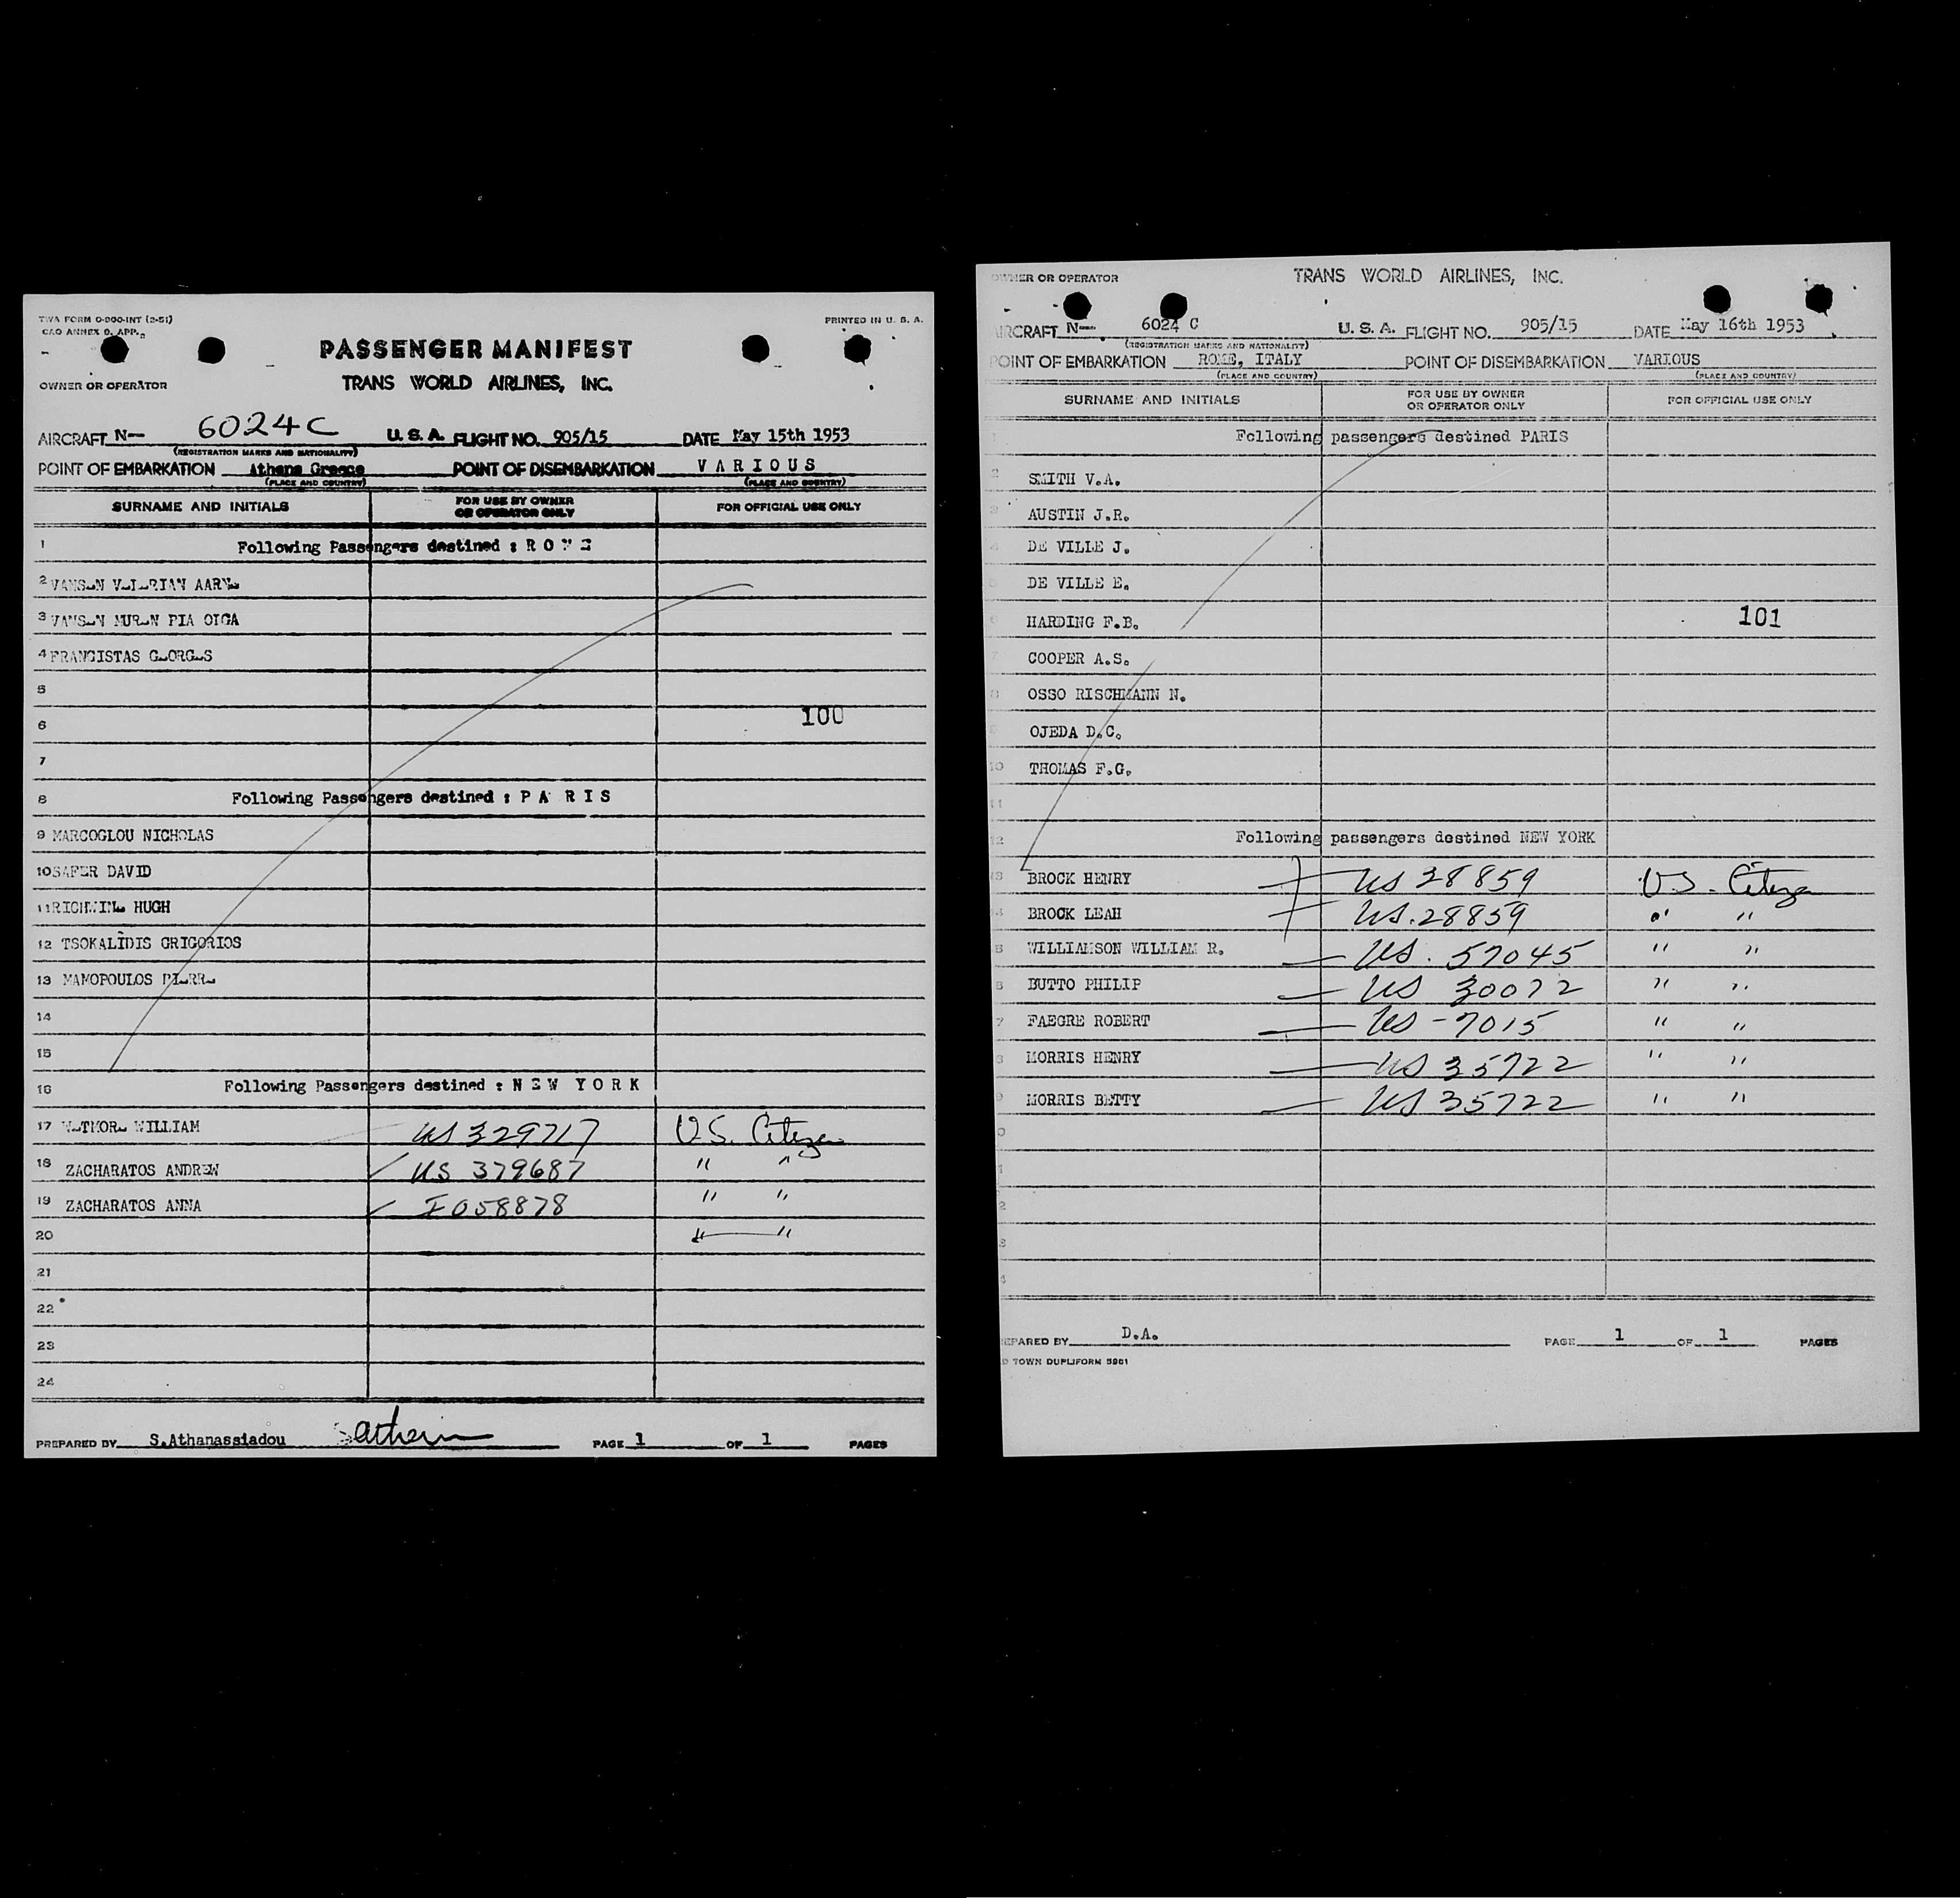 TWA FORM O-200-INT (2-51)
PRINTED IN U. S. A.
PASSENGER MANIFEST
OWNER OR OPERATOR TRANS WORLD AIRLINES, INC.
AIRCRAFT N— 6024C U. S. A. FLIGHT NO. 905/15 DATE May 15th 1953
(REGISTRATION MARKS AND NATIONALITY)
POINT OF EMBARKATION Athens Greece POINT OF DISEMBARKATION V A R I O U S
(PLACE AND COUNTRY) (PLACE AND COUNTRY)
SURNAME AND INITIALS FOR USE BY OWNER OR OPERATOR ONLY FOR OFFICIAL USE ONLY
1 Following Passengers destined : R O M E
2 AARNE
3 PIA
4 FRANGISTAS GEORGES
5
6 100
7
8 Following Passengers destined : P A R I S
9 MARCOGLOU NICHOLAS
10 SAFER DAVID
11 HUGH
12 TSOKALIDIS GRIGORIOS
13 MAMOPOULOS PIERRE
14
15
16 Following Passengers destined : N E W Y O R K
17 WILLIAM US 329717 U.S. Citizen
18 ZACHARATOS ANDREW US 379687 " "
19 ZACHARATOS ANNA I058878 " "
20 " "
21
22
23
24
PREPARED BY S.Athanassiadou PAGE 1 OF 1 PAGES
OWNER OR OPERATOR TRANS WORLD AIRLINES, INC.
AIRCRAFT N— 6024 C U. S. A. FLIGHT NO. 905/15 DATE May 16th 1953
(REGISTRATION MARKS AND NATIONALITY)
POINT OF EMBARKATION ROME, ITALY POINT OF DISEMBARKATION VARIOUS
(PLACE AND COUNTRY) (PLACE AND COUNTRY)
SURNAME AND INITIALS FOR USE BY OWNER OR OPERATOR ONLY FOR OFFICIAL USE ONLY
Following passengers destined PARIS
SMITH V.A.
AUSTIN J.R.
DE VILLE J.
DE VILLE E.
HARDING F.B. 101
COOPER A.S.
OSSO RISCHMANN N.
OJEDA D.C.
10 THOMAS F.G.
11
12 Following passengers destined NEW YORK
BROCK HENRY US 28859 U.S. Citizen
BROCK LEAH US.28859 " "
WILLIAMSON WILLIAM R. US. 57045 " "
BUTTO PHILIP US 30072 " "
FAEGRE ROBERT US-7015 " "
MORRIS HENRY US 35722 " "
MORRIS BETTY US 35722 " "
PREPARED BY D.A. PAGE 1 OF 1 PAGES
TOWN DUPLIFORM 5961